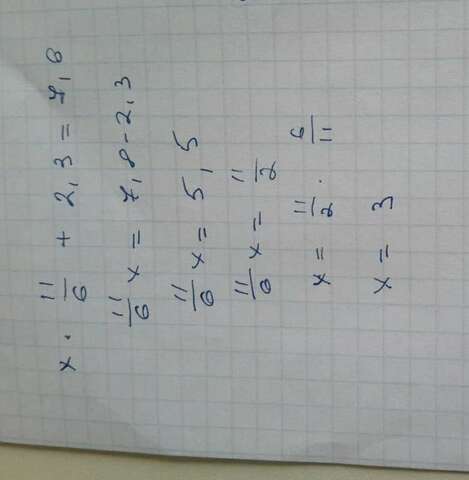 x · 11/6 + 2,3 = 7,8
11/6 x = 7,8 - 2,3
11/6 x = 5,5
11/6 x = 11/2
x = 11/2 · 6/11
x = 3